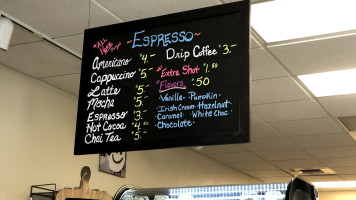 ~ESPRESSO~
Americano $4.-
Cappuccino $5.-
Latte $5.-
Mocha $5.-
Espresso $3.-
Hot Cocoa $4.-
Chai Tea $5.-
Drip Coffee $3.-
*Extra Shot $1.50
*Flavors $.50
Vanilla · Pumpkin
Irish Cream · Hazelnut
Caramel · White Choc
Chocolate